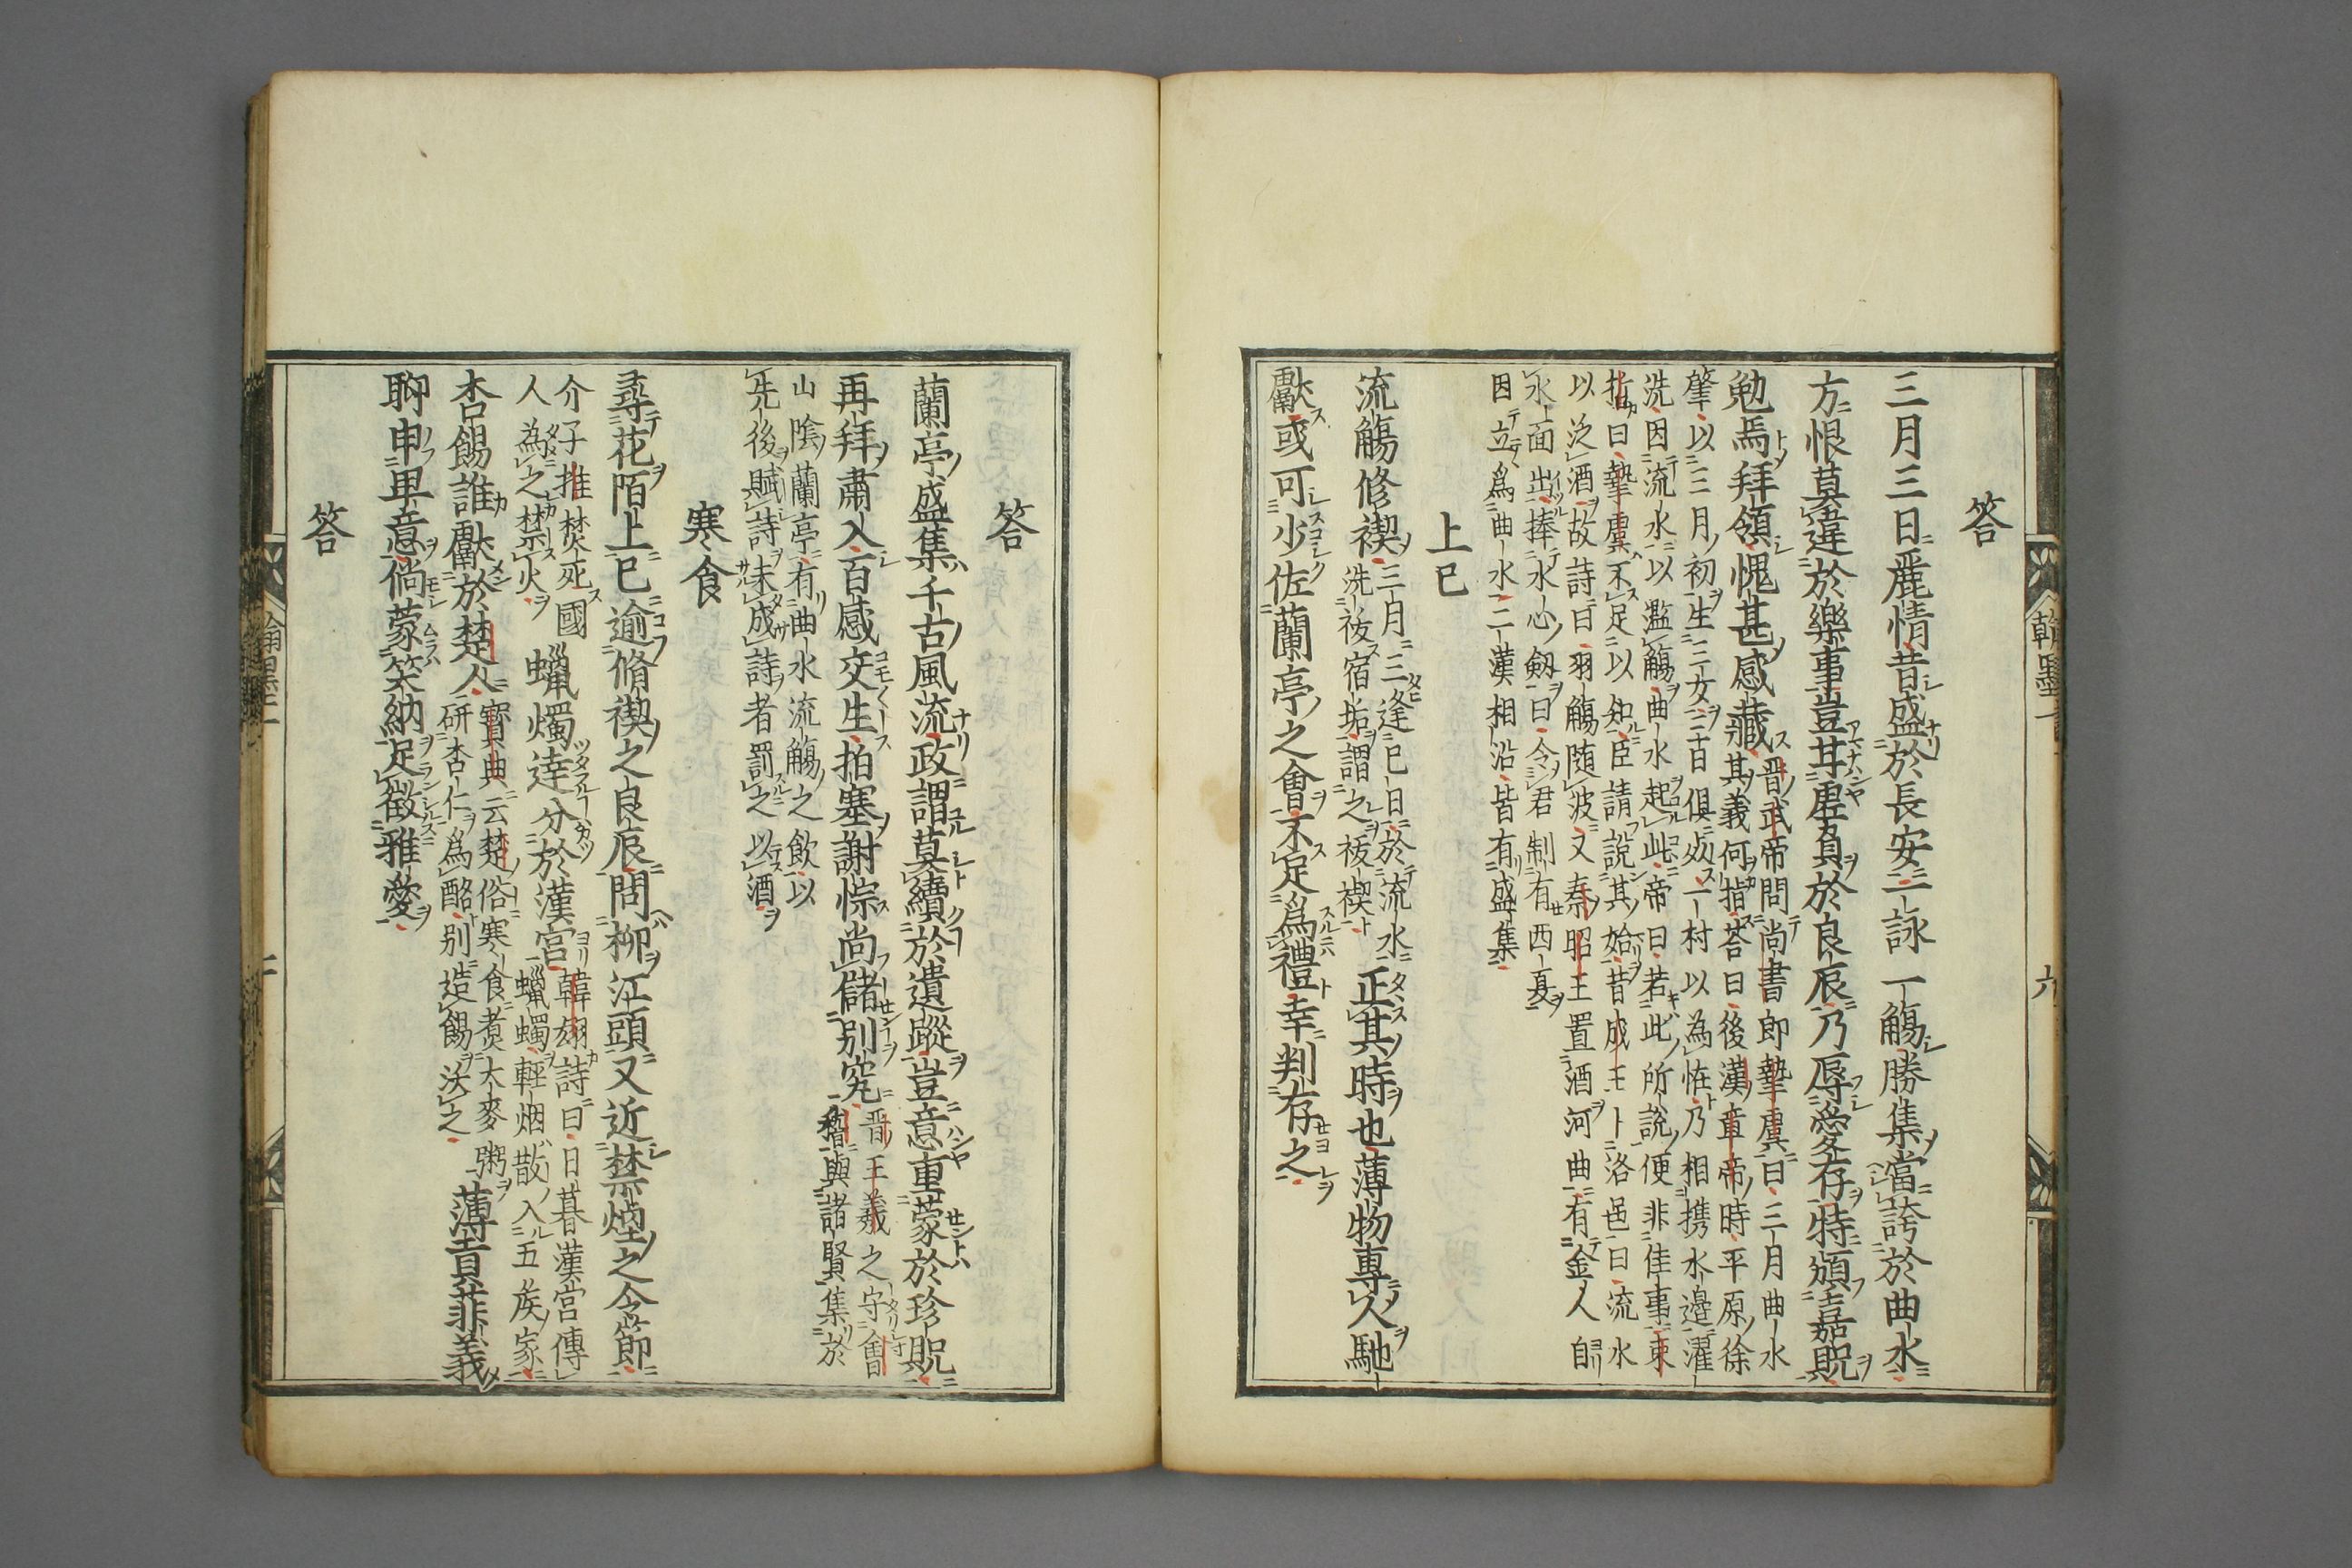 答
三月三日麗情昔盛於長安一詠一觴勝集當誇於曲水
方恨莫違於樂事豈甘虛負於良辰乃辱愛存特頒嘉貺
勉焉拜領愧甚感藏
晋武帝問尚書郎摯虞曰三月曲水
其義何指荅曰後漢章帝時平原徐
肇以三月初生三女三日俱歿一村以為怪乃相携水邉濯
洗因流水以濫觴曲水起此帝曰若此所說便非佳事束
晢曰摯虞不足以知臣請說其始昔成王卜洛邑曰流水
以泛酒故詩曰羽觴随波又秦昭王置酒河曲有金人自
水面出捧水心劔曰令君制有西夏
因立爲曲水二漢相沿皆有盛集
上巳
流觴修禊
三月三逢巳日於流水
洗祓宿垢謂之祓禊
正其時也薄物專人馳
獻或可少佐蘭亭之會不足爲禮幸判存之
答
蘭亭盛集千古風流政謂莫續於遺蹤豈意重蒙於珍貺
再拜肅入百感交生拍塞謝悰尚儲别究
晋王羲之守會
稽與諸賢集於
山陰蘭亭有曲水流觴之飲以
先後賦詩未成詩者罰之以酒
寒食
尋花陌上巳逾脩禊之良辰問柳江頭又近禁煙之令節
介子推焚死國
人為之禁火
蠟燭逹分於漢宮
韓翃詩曰日暮漢宮傳
蠟蠋輕烟散入五矦家
杏餳誰獻於楚人
寳典云楚俗寒食煑大麥粥
研杏仁爲酪别造餳沃之
薄言菲義
聊申卑意倘蒙笑納足徵雅愛
答
翰墨
六